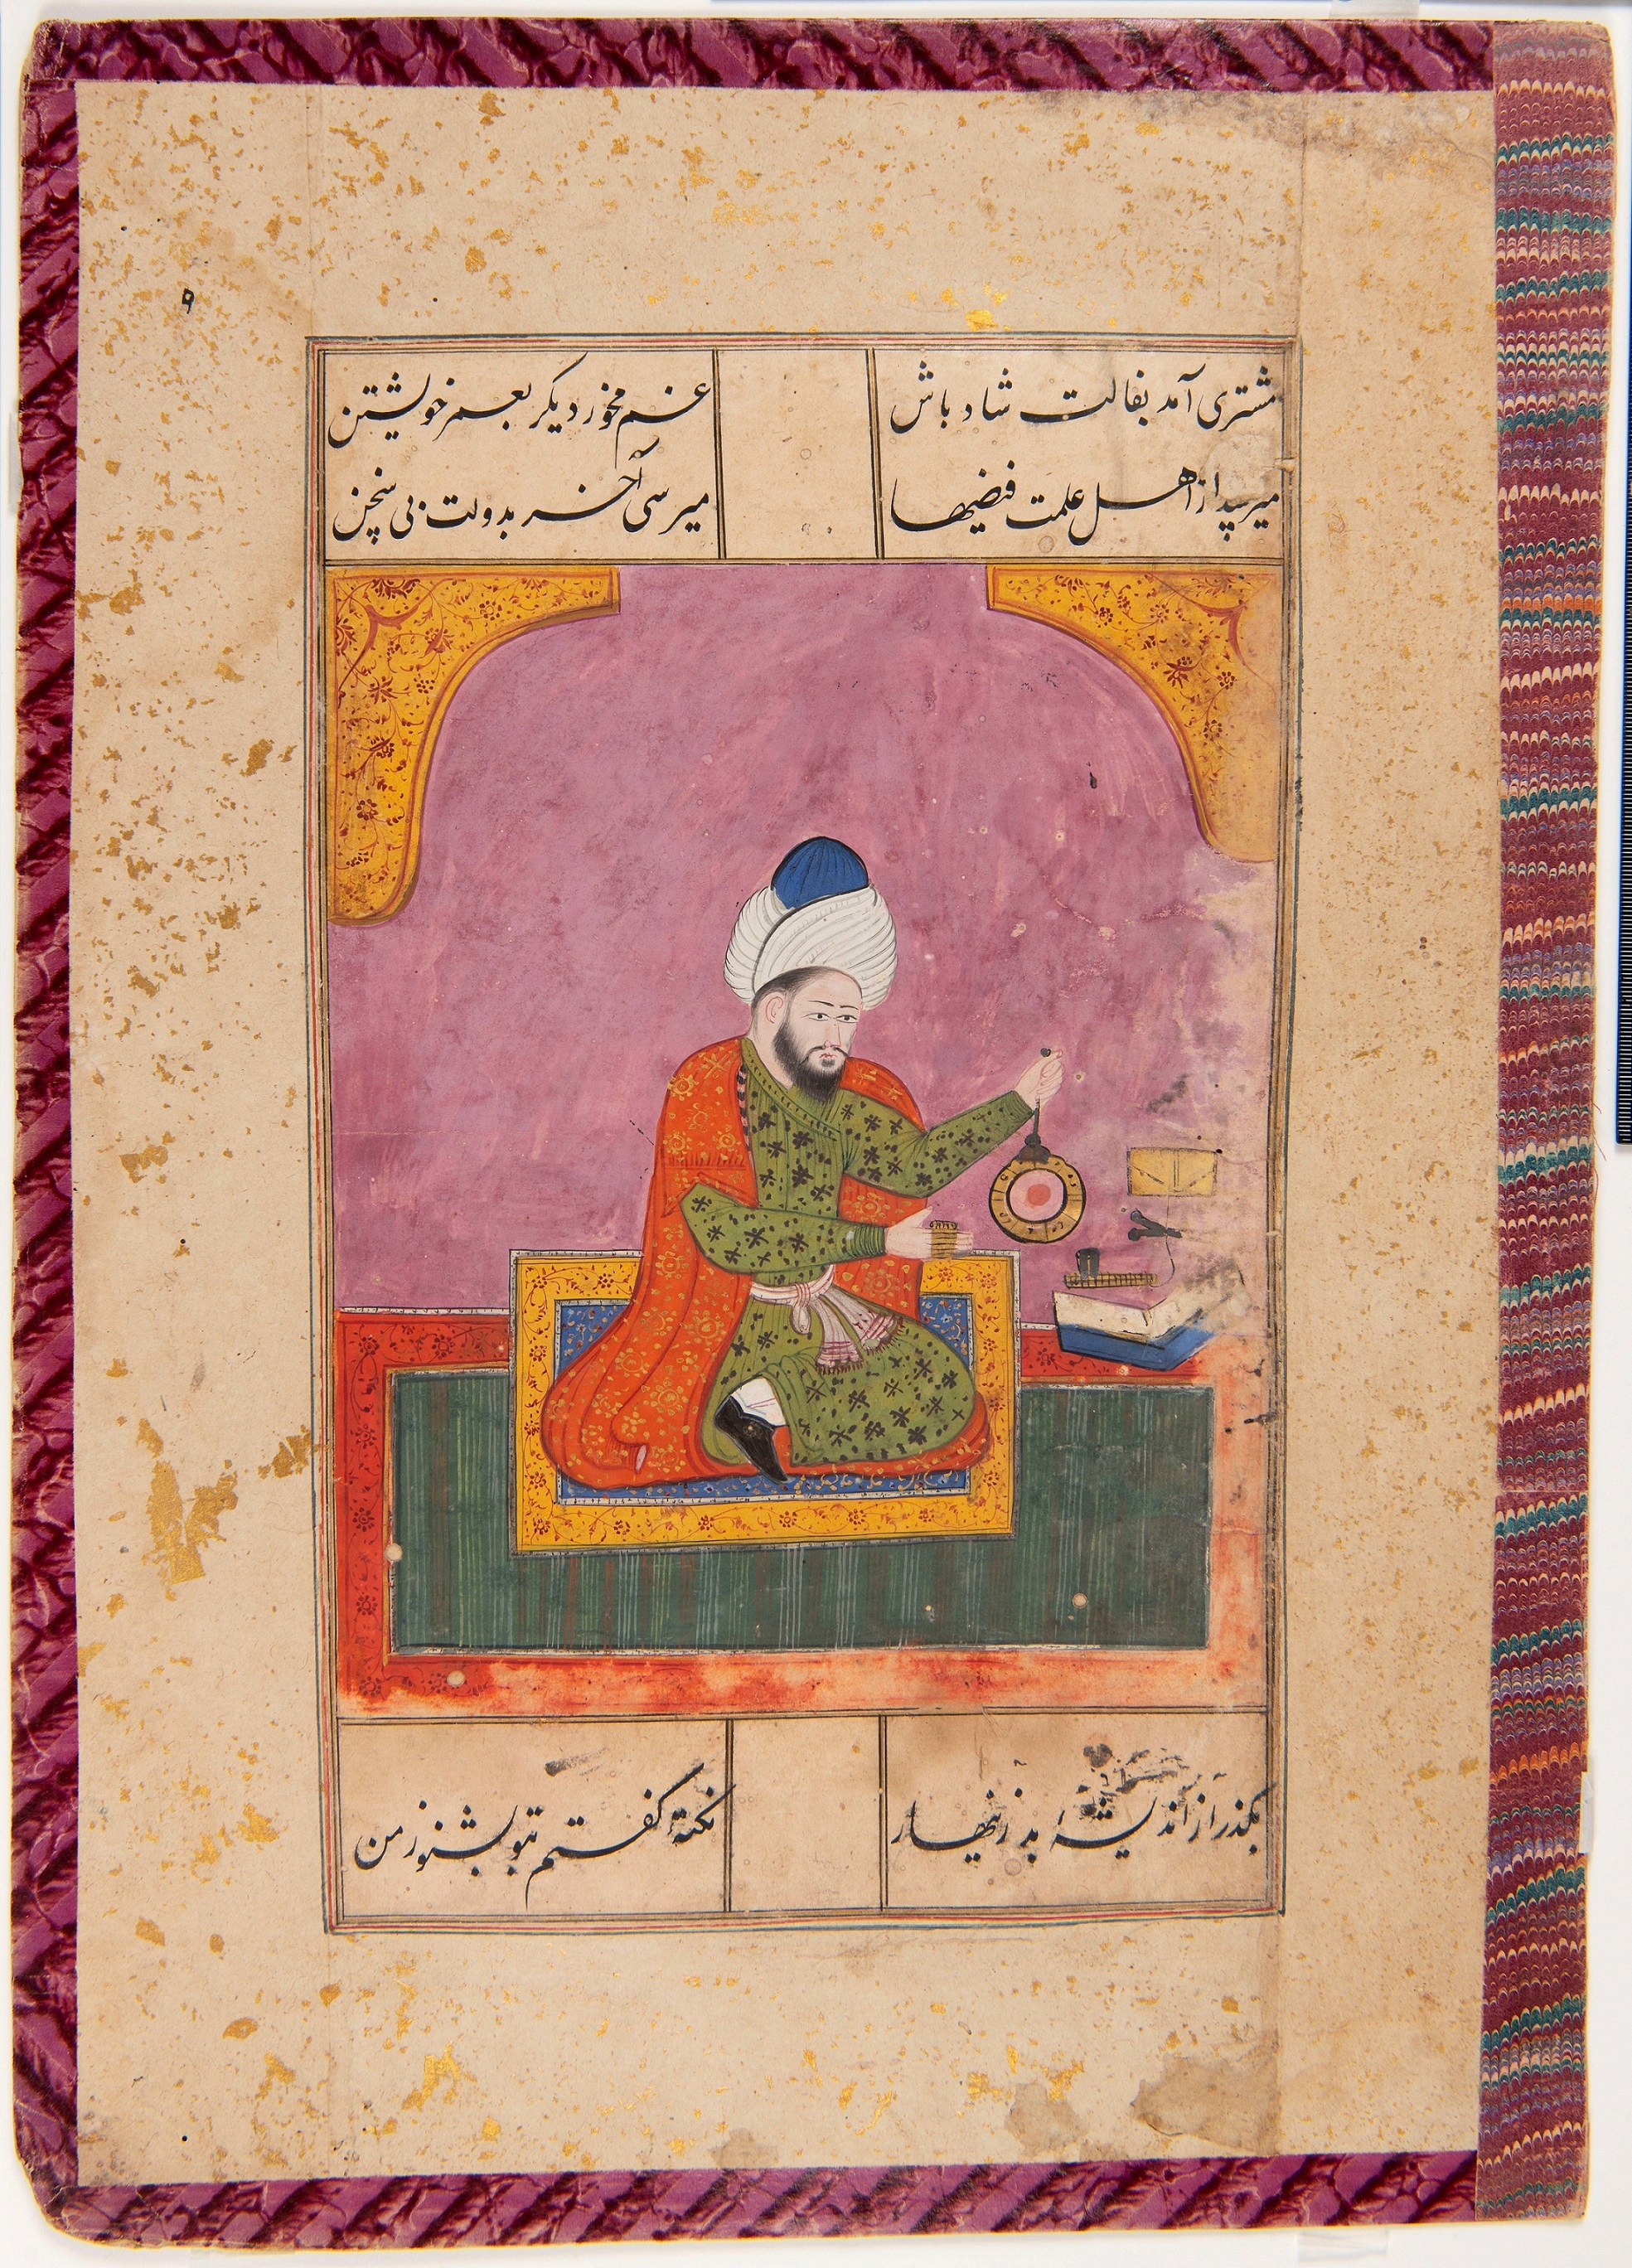 مشتری آمد بفالت شاد باش
غم مخور دیگر بعمر خویشتن
میرسد از اهل علمت فیضها
میرسی آخر بدولت بی سخن
بگذر از اندیشهٔ بد زینهار
نکتهٔ گفتم بتو بشنو ز من
۹